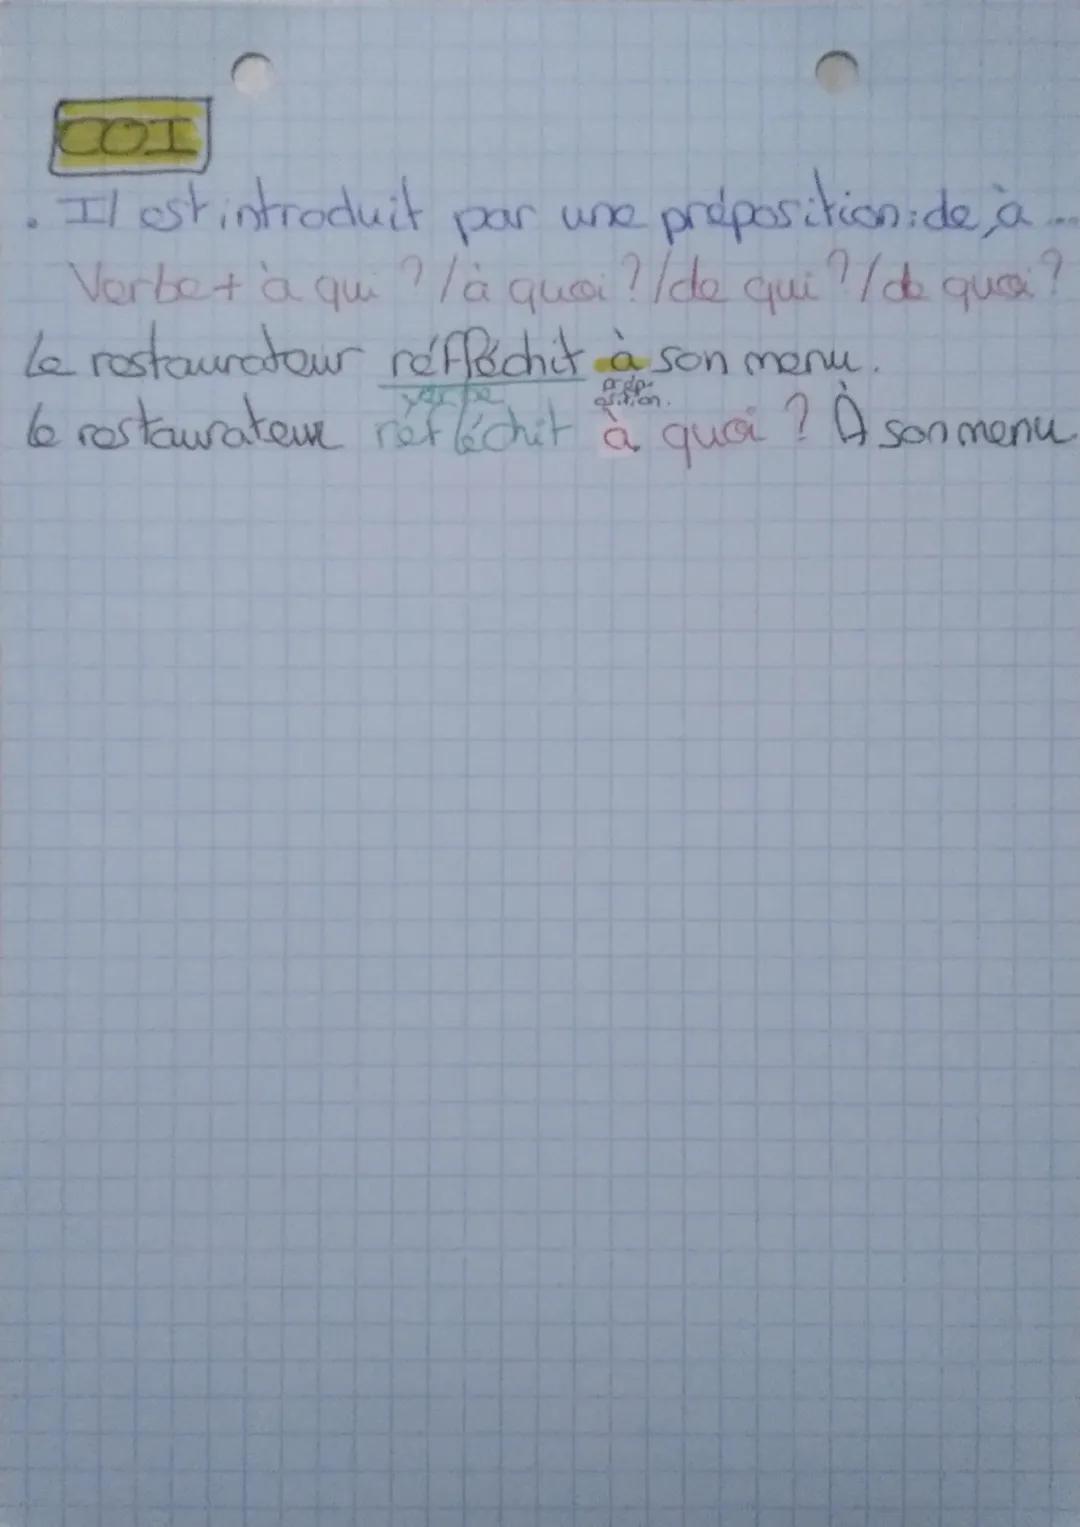 COI
. Il est introduit par une préposition : de, à ...
Verbe + à qui ? / à quoi ? / de qui ? / de quoi ?
Le restaurateur réfléchit à son menu.
verbe prép-
osition.
Le restaurateur réfléchit à quoi ? À son menu.